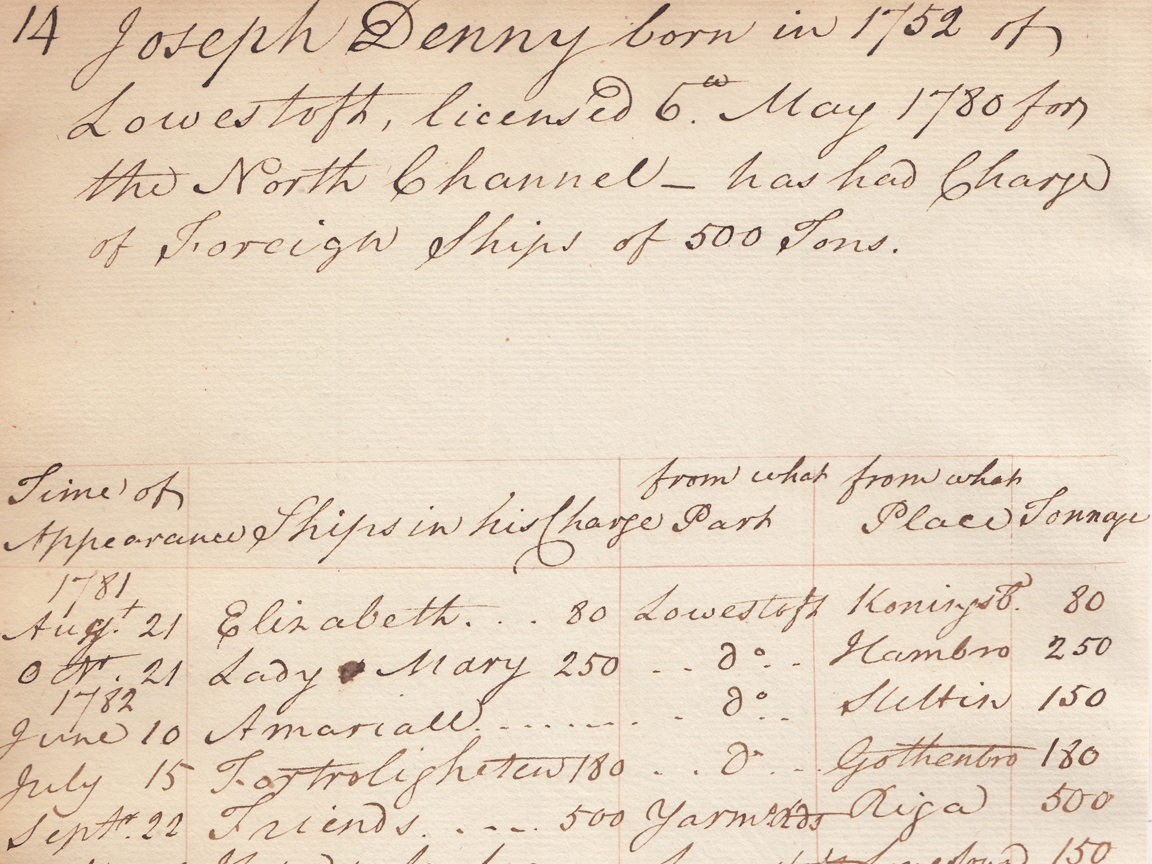 14 Joseph Denny born in 1752 of
Lowestoft, licensed 6.a May 1780 for
the North Channel - has had Charge
of Foreign Ships of 500 Tons.
Time of Appearance Ships in his Charge from what Part from what Place Tonnage
1781
Augt. 21 Elizabeth. . . 80 Lowestoft Koningsb. 80
Octr. 21 Lady Mary 250 . . Do. . Hambro 250
1782
June 10 Amariall . . . . . . . . Do. . Stettin 150
July 15 Fortrolighetew 180 . . Do . . Gothenbro 180
Septr. 22 Friends. . . . . 500 Yarmo Rds Riga 500
150